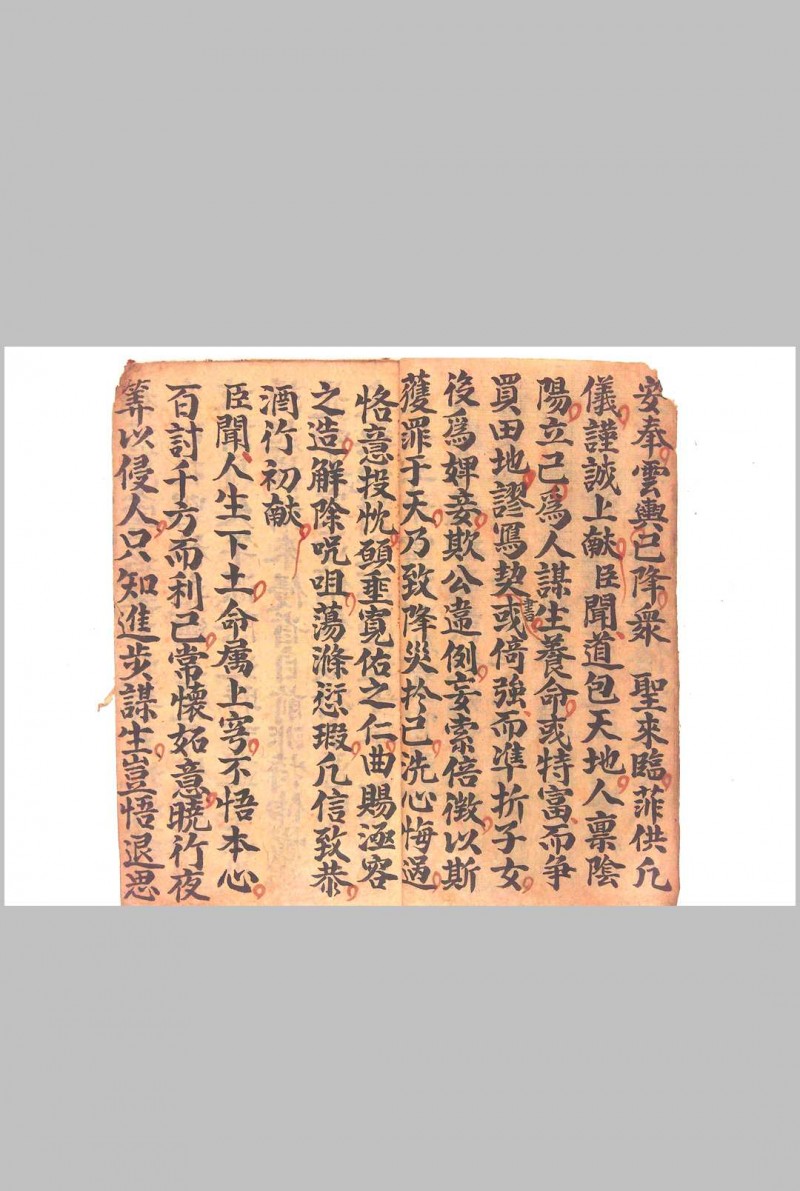 安奉雲輿已降衆　聖來臨菲供凡
儀謹誠上献臣聞道包天地人禀陰
陽立己為人謀生養命或恃富而争
買田地謬寫契書或倚強而準折子女
後為婢妾欺公違例妄索倍徴以斯
獲罪于天乃致降災扵己洗心悔過
恪意投忱願垂寛佑之仁曲賜涵容
之造解除咒咀蕩滌愆瑕凢信致恭
酒行初献
臣聞人生下土命属上穹不悟本心
百計千方而利己常懷妬意曉行夜
筭以侵人只知進步謀生豈悟退思